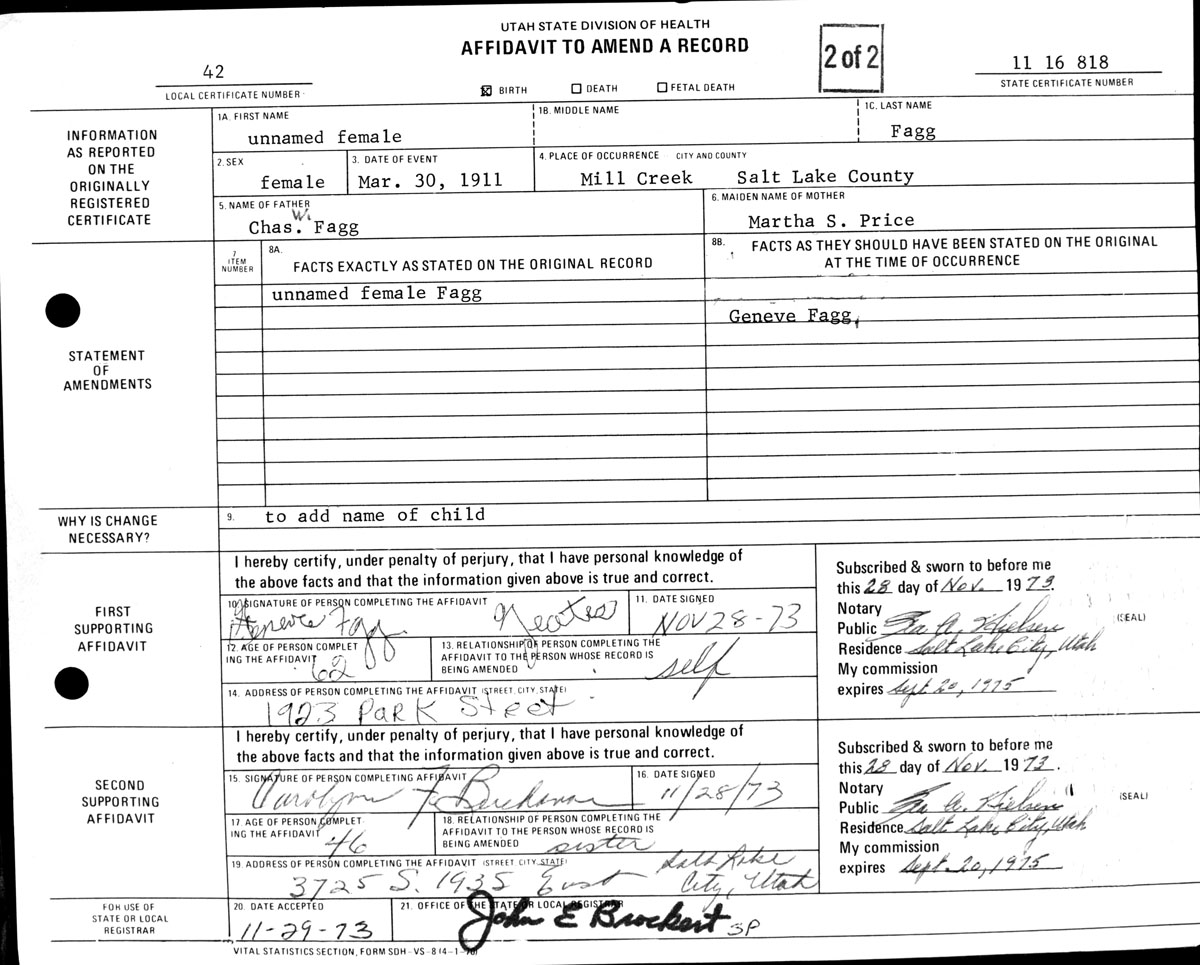 UTAH STATE DIVISION OF HEALTH
AFFIDAVIT TO AMEND A RECORD
2 of 2
42
LOCAL CERTIFICATE NUMBER
☒ BIRTH ☐ DEATH ☐ FETAL DEATH
11 16 818
STATE CERTIFICATE NUMBER
INFORMATION
AS REPORTED
ON THE
ORIGINALLY
REGISTERED
CERTIFICATE
1A. FIRST NAME
unnamed female
1B. MIDDLE NAME
1C. LAST NAME
Fagg
2. SEX
female
3. DATE OF EVENT
Mar. 30, 1911
4. PLACE OF OCCURRENCE CITY AND COUNTY
Mill Creek Salt Lake County
5. NAME OF FATHER
W.
Chas. Fagg
6. MAIDEN NAME OF MOTHER
Martha S. Price
STATEMENT
OF
AMENDMENTS
7
ITEM
NUMBER
8A.
FACTS EXACTLY AS STATED ON THE ORIGINAL RECORD
8B.
FACTS AS THEY SHOULD HAVE BEEN STATED ON THE ORIGINAL
AT THE TIME OF OCCURRENCE
unnamed female Fagg
Geneve Fagg
WHY IS CHANGE
NECESSARY?
9. to add name of child
FIRST
SUPPORTING
AFFIDAVIT
I hereby certify, under penalty of perjury, that I have personal knowledge of
the above facts and that the information given above is true and correct.
10. SIGNATURE OF PERSON COMPLETING THE AFFIDAVIT
Geneve Fagg Yeates
11. DATE SIGNED
NOV 28-73
12. AGE OF PERSON COMPLET
ING THE AFFIDAVIT
62
13. RELATIONSHIP OF PERSON COMPLETING THE
AFFIDAVIT TO THE PERSON WHOSE RECORD IS
BEING AMENDED
self
14. ADDRESS OF PERSON COMPLETING THE AFFIDAVIT (STREET, CITY, STATE)
1923 PARK Street
Subscribed & sworn to before me
this 28 day of Nov. 1973.
Notary
Public Ila A. Nielsen
(SEAL)
Residence Salt Lake City, Utah
My commission
expires Sept. 20, 1975
SECOND
SUPPORTING
AFFIDAVIT
I hereby certify, under penalty of perjury, that I have personal knowledge of
the above facts and that the information given above is true and correct.
15. SIGNATURE OF PERSON COMPLETING AFFIDAVIT
Carolynn F. Buchanan
16. DATE SIGNED
11/28/73
17. AGE OF PERSON COMPLET
ING THE AFFIDAVIT
46
18. RELATIONSHIP OF PERSON COMPLETING THE
AFFIDAVIT TO THE PERSON WHOSE RECORD IS
BEING AMENDED
sister
19. ADDRESS OF PERSON COMPLETING THE AFFIDAVIT (STREET, CITY, STATE)
3725 S. 1935 East Salt Lake
City, Utah
Subscribed & sworn to before me
this 28 day of Nov. 1973.
Notary
Public Ila A. Nielsen
(SEAL)
Residence Salt Lake City, Utah
My commission
expires Sept. 20, 1975
FOR USE OF
STATE OR LOCAL
REGISTRAR
20. DATE ACCEPTED
11-29-73
21. OFFICE OF THE STATE OR LOCAL REGISTRAR
John E Brockert JP
VITAL STATISTICS SECTION, FORM SDH-VS-8 (4-1-70)